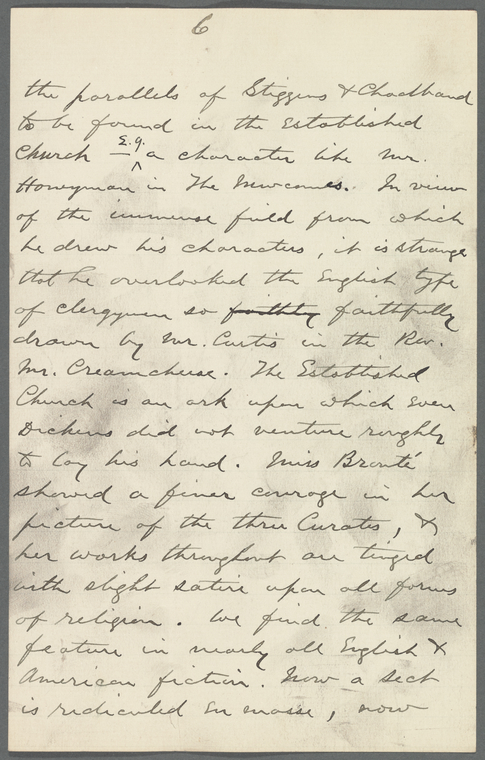 6
the parallels of Stiggins & Chadband
to be found in the Established
Church — E.g. a character like Mr.
Honeyman in The Newcomes. In view
of the immense field from which
he drew his characters, it is strange
that he overlooked the English type
of clergymen so faithfully
drawn by Mr. Curtis in the Rev.
Mr. Creamcheese. The Established
Church is an ark upon which even
Dickens did not venture roughly
to lay his hand. Miss Bronté
showed a finer courage in her
picture of the three Curates, &
her works throughout are tinged
with slight satire upon all forms
of religion. We find the same
feature in nearly all English &
American fiction. Now a sect
is ridiculed en masse, now